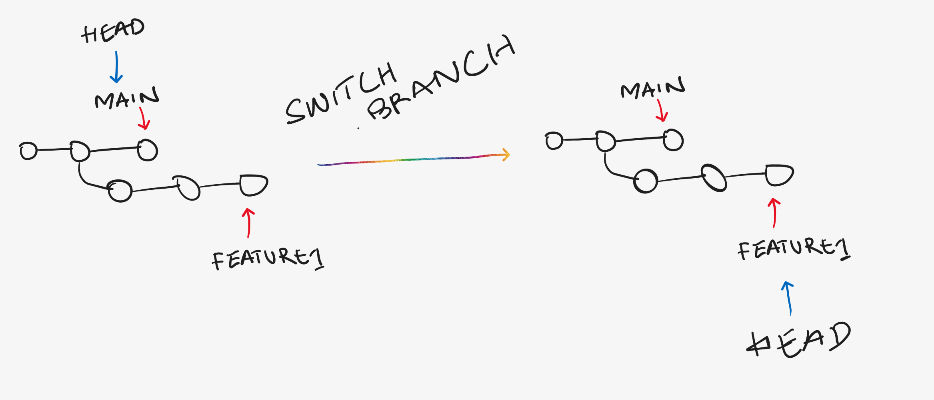 HEAD
MAIN
FEATURE1
SWITCH
BRANCH
MAIN
FEATURE1
HEAD